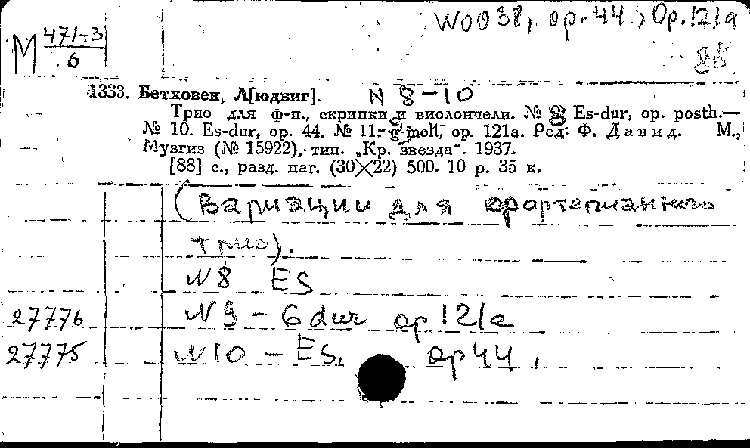 WoO 38, op. 44, Op. 121a
M 471-3
6
1333. Бетховен, Л[юдвиг]. N 8-10
Трио для ф-п., скрипки и виолончели. № Es-dur, op. posth.—
№ 10. Es-dur, op. 44. № 11. moll, op. 121a. Ред: Ф. Давид. М.,
Музгиз (№ 15922), тип. „Кр. звезда“. 1937.
[88] с., разд. паг. (30×22) 500. 10 р. 35 к.
(Вариации для фортепианного
трио).
N8 ES
27776 N 9 - G dur op 121a
27775 N10 - ES, op 44,